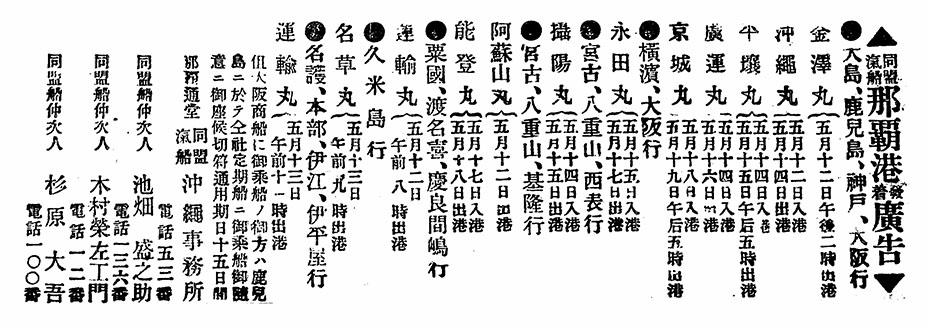 ▲同盟汽船那覇港発着廣告▼
●大島、鹿兒島、神戸、大阪行
金澤丸 五月十二日午後二時出港
沖繩丸 五月十二日入港 五月十四日出港
平壤丸 五月十四日入港 五月十五日午后五時出港
廣運丸 五月十四日入港 五月十六日出港
京城丸 五月十八日入港 五月十九日午后五時出港
●横濱、大阪行
永田丸 五月十五日入港 五月十七日出港
●宮古、八重山、西表行
攝陽丸 五月十四日入港 五月十五日出港
●宮古、八重山、基隆行
阿蘇山丸 五月十二日出港
能登丸 五月十七日入港 五月十八日出港
●粟國、渡名喜、慶良間嶋行
運輸丸 五月十二日 午前八時出港
●久米島行
名草丸 五月十三日 午前九時出港
●名護、本部、伊江、伊平屋行
運輸丸 五月十三日 午前十一時出港
但大阪商船に御乘船ノ御方ハ鹿兒
島ニ於テ仝社定期船ニ御乘船御隨
意ニ御座候切符通用期日十五日間
那覇通堂 同盟汽船 沖繩事務所
電話一五三番
同盟船仲次人 池畑盛之助
電話一三六番
同盟船仲次人 木村榮左工門
電話一二番
同盟船仲次人 杉原大吾
電話一〇〇番